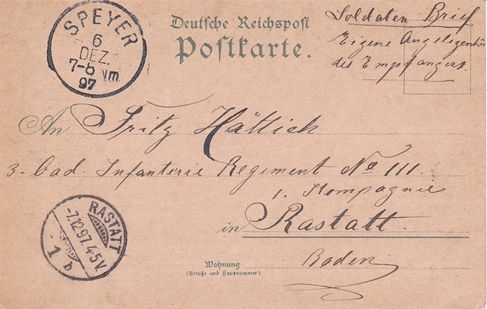 Deutsche Reichspost
Postkarte.
SPEYER
6
DEZ.
7-8 Nm
97
Soldaten Brief
Eigene Angelegenheit
des Empfängers.
An Fritz Hättich
3. Bad. Infanterie Regiment No 111.
1. Kompagnie
in Rastatt.
Baden
RASTATT
-7.12.97.4-5V.
1 b
Wohnung
(Straße und Hausnummer)